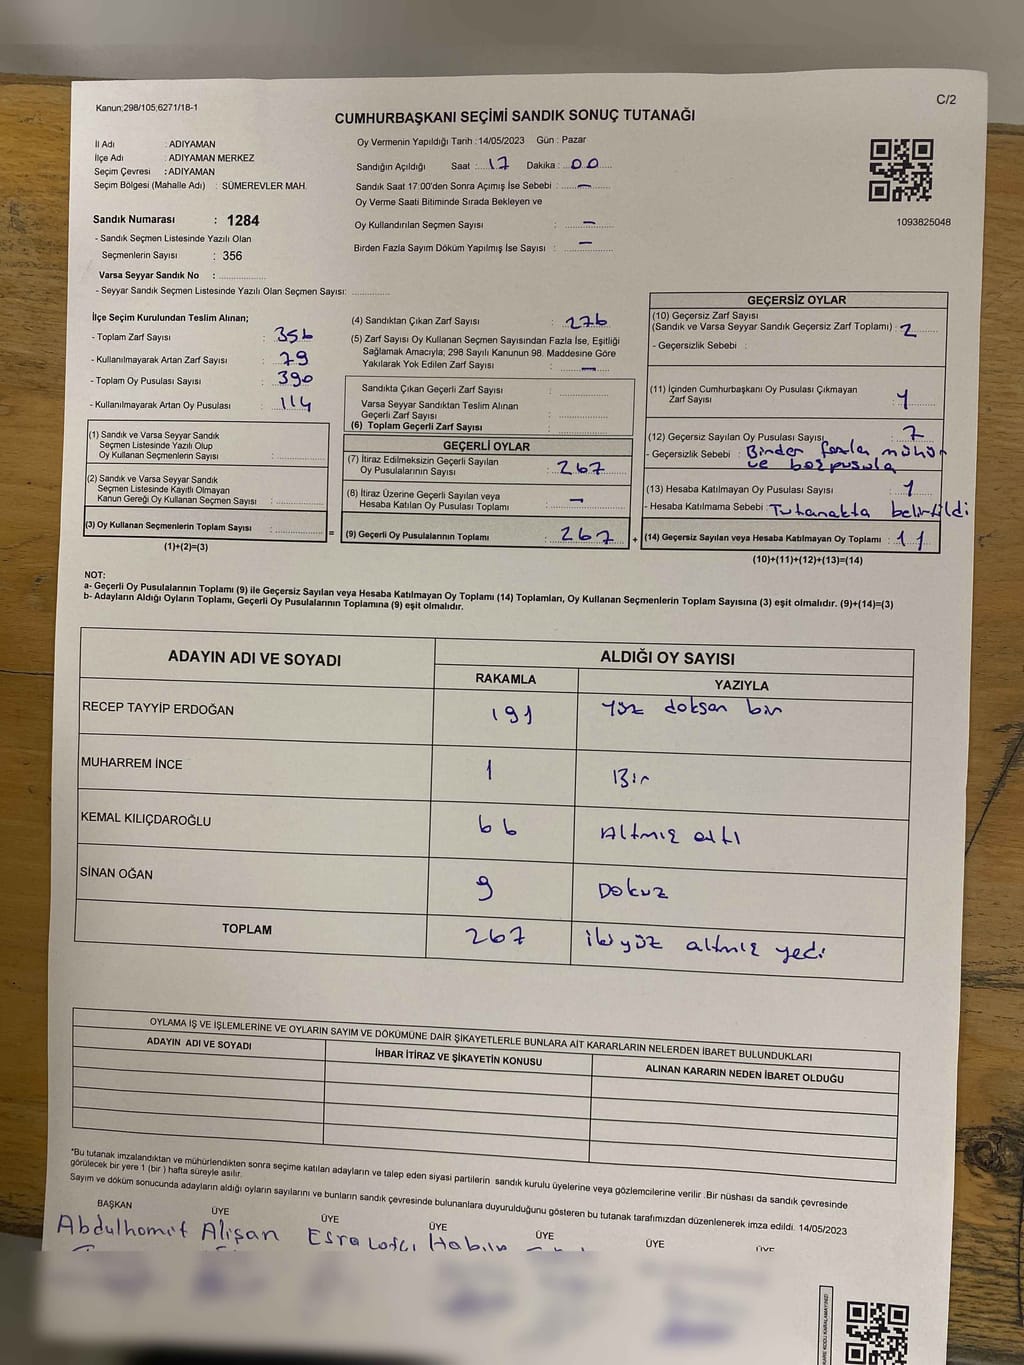 Kanun;298/105;6271/18-1
C/2
CUMHURBAŞKANI SEÇİMİ SANDIK SONUÇ TUTANAĞI
İl Adı : ADIYAMAN
İlçe Adı : ADIYAMAN MERKEZ
Seçim Çevresi : ADIYAMAN
Seçim Bölgesi (Mahalle Adı) : SÜMEREVLER MAH.
Sandık Numarası : 1284
- Sandık Seçmen Listesinde Yazılı Olan
Seçmenlerin Sayısı : 356
Varsa Seyyar Sandık No :
- Seyyar Sandık Seçmen Listesinde Yazılı Olan Seçmen Sayısı:
Oy Vermenin Yapıldığı Tarih : 14/05/2023 Gün : Pazar
Sandığın Açıldığı Saat : 17 Dakika : 00
Sandık Saat 17:00'den Sonra Açımış İse Sebebi : —
Oy Verme Saati Bitiminde Sırada Bekleyen ve
Oy Kullandırılan Seçmen Sayısı : —
Birden Fazla Sayım Döküm Yapılmış İse Sayısı : —
1093825048
İlçe Seçim Kurulundan Teslim Alınan;
- Toplam Zarf Sayısı : 356
- Kullanılmayarak Artan Zarf Sayısı : 79
- Toplam Oy Pusulası Sayısı : 390
- Kullanılmayarak Artan Oy Pusulası : 114
(1) Sandık ve Varsa Seyyar Sandık
Seçmen Listesinde Yazılı Olup
Oy Kullanan Seçmenlerin Sayısı :
(2) Sandık ve Varsa Seyyar Sandık
Seçmen Listesinde Kayıtlı Olmayan
Kanun Gereği Oy Kullanan Seçmen Sayısı :
(3) Oy Kullanan Seçmenlerin Toplam Sayısı :
=
(1)+(2)=(3)
(4) Sandıktan Çıkan Zarf Sayısı : 276
(5) Zarf Sayısı Oy Kullanan Seçmen Sayısından Fazla İse, Eşitliği
Sağlamak Amacıyla; 298 Sayılı Kanunun 98. Maddesine Göre
Yakılarak Yok Edilen Zarf Sayısı : —
Sandıkta Çıkan Geçerli Zarf Sayısı :
Varsa Seyyar Sandıktan Teslim Alınan
Geçerli Zarf Sayısı :
(6) Toplam Geçerli Zarf Sayısı :
GEÇERLİ OYLAR
(7) İtiraz Edilmeksizin Geçerli Sayılan
Oy Pusulalarının Sayısı : 267
(8) İtiraz Üzerine Geçerli Sayılan veya
Hesaba Katılan Oy Pusulası Toplamı : —
(9) Geçerli Oy Pusulalarının Toplamı : 267
+
GEÇERSİZ OYLAR
(10) Geçersiz Zarf Sayısı
(Sandık ve Varsa Seyyar Sandık Geçersiz Zarf Toplamı) : 2
- Geçersizlik Sebebi :
(11) İçinden Cumhurbaşkanı Oy Pusulası Çıkmayan
Zarf Sayısı : 1
(12) Geçersiz Sayılan Oy Pusulası Sayısı : 7
- Geçersizlik Sebebi : Birden fazla mühür
ve boş pusula
(13) Hesaba Katılmayan Oy Pusulası Sayısı : 1
- Hesaba Katılmama Sebebi : Tutanakta belirtildi
(14) Geçersiz Sayılan veya Hesaba Katılmayan Oy Toplamı : 11
(10)+(11)+(12)+(13)=(14)
NOT:
a- Geçerli Oy Pusulalarının Toplamı (9) ile Geçersiz Sayılan veya Hesaba Katılmayan Oy Toplamı (14) Toplamları, Oy Kullanan Seçmenlerin Toplam Sayısına (3) eşit olmalıdır. (9)+(14)=(3)
b- Adayların Aldığı Oyların Toplamı, Geçerli Oy Pusulalarının Toplamına (9) eşit olmalıdır.
ADAYIN ADI VE SOYADI
ALDIĞI OY SAYISI
RAKAMLA YAZIYLA
RECEP TAYYİP ERDOĞAN 191 Yüz doksan bir
MUHARREM İNCE 1 Bir
KEMAL KILIÇDAROĞLU 66 Altmış altı
SİNAN OĞAN 9 Dokuz
TOPLAM 267 iki yüz altmış yedi
OYLAMA İŞ VE İŞLEMLERİNE VE OYLARIN SAYIM VE DÖKÜMÜNE DAİR ŞİKAYETLERLE BUNLARA AİT KARARLARIN NELERDEN İBARET BULUNDUKLARI
ADAYIN ADI VE SOYADI İHBAR İTİRAZ VE ŞİKAYETİN KONUSU ALINAN KARARIN NEDEN İBARET OLDUĞU
*Bu tutanak imzalandıktan ve mühürlendikten sonra seçime katılan adayların ve talep eden siyasi partilerin sandık kurulu üyelerine veya gözlemcilerine verilir .Bir nüshası da sandık çevresinde
görülecek bir yere 1 (bir ) hafta süreyle asılır.
Sayım ve döküm sonucunda adayların aldığı oyların sayılarını ve bunların sandık çevresinde bulunanlara duyurulduğunu gösteren bu tutanak tarafımızdan düzenlenerek imza edildi. 14/05/2023
BAŞKAN ÜYE ÜYE ÜYE ÜYE ÜYE ÜYE
Abdulhamit Alişan Esra Habib